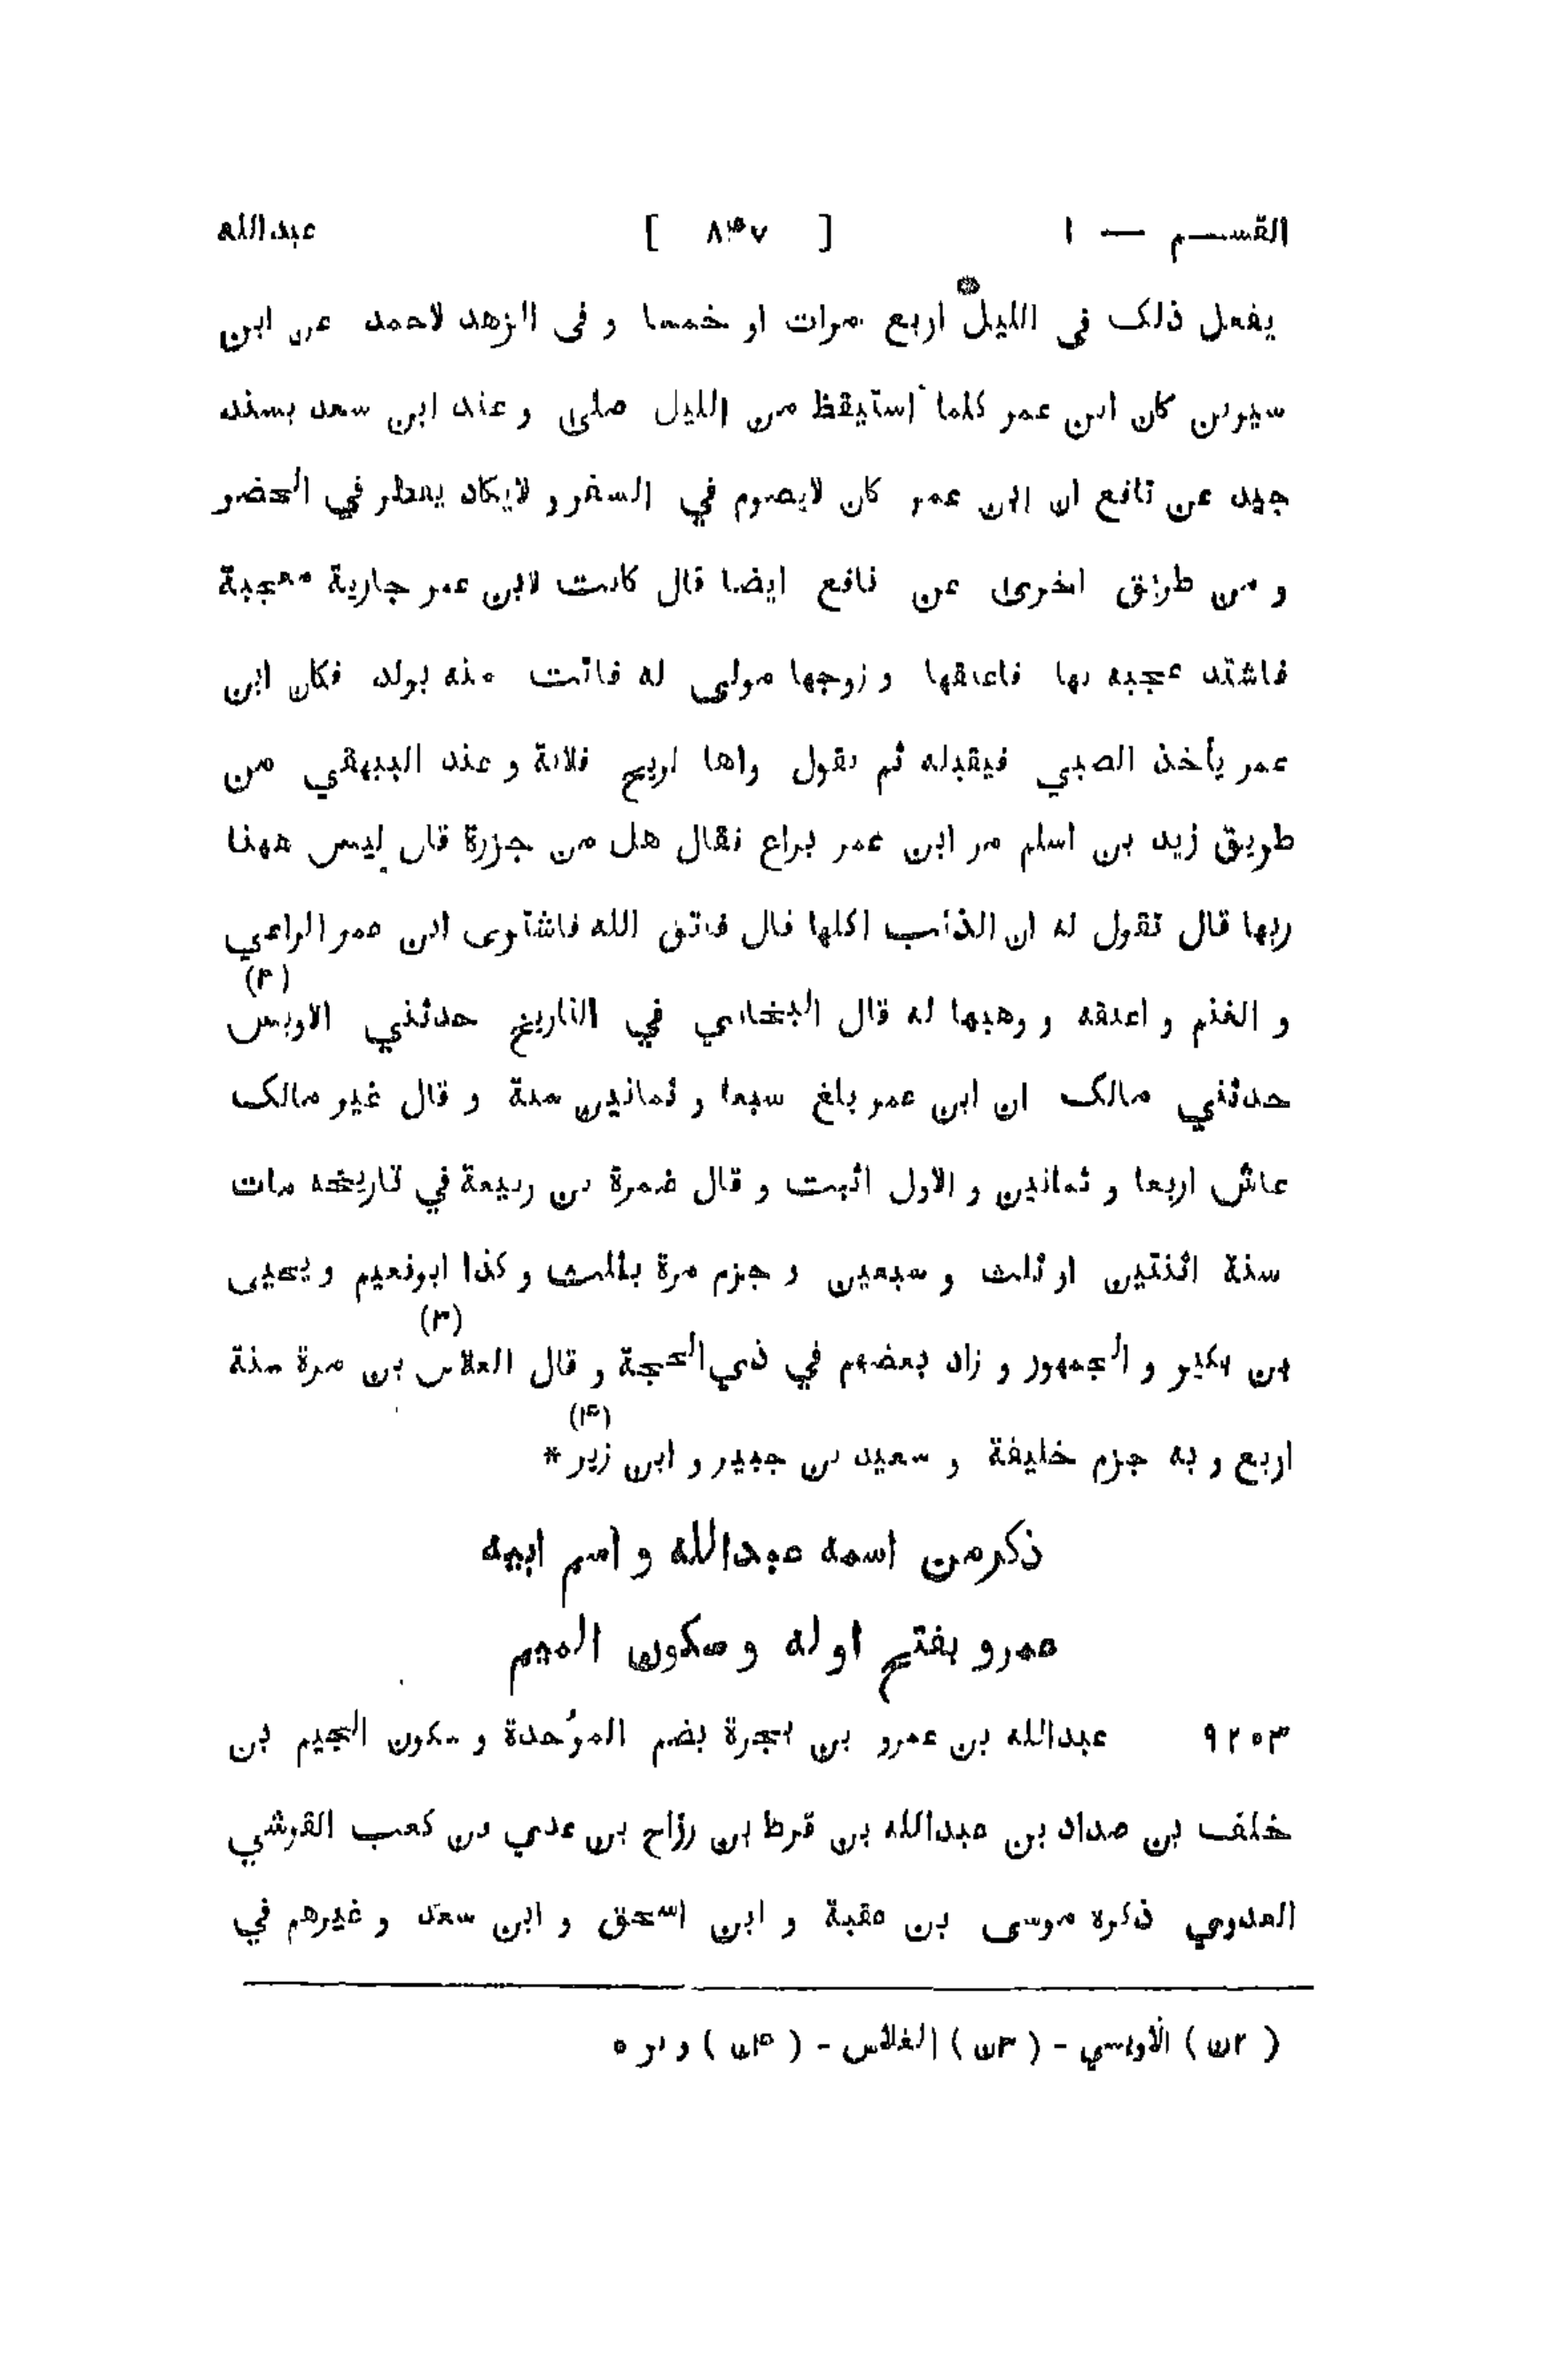 القسم — ١ [ ٨٤٧ ] عبدالله
يفعل ذلك فى الليل اربع مرات او خمسا و فى الزهد لاحمد عن ابن
سيرين كان ابن عمر كلما استيقظ من الليل صلى و عند ابن سعد بسند
جيد عن نافع ان ابن عمر كان لايصوم في السفر و لايكاد يفطر في الحضر
و من طريق اخرى عن نافع ايضا قال كانت لابن عمر جارية معجبة
فاشتد عجبه بها فاعتقها و زوجها مولى له فاتت منه بولد فكان ابن
عمر يأخذ الصبي فيقبله ثم يقول واها لريح فلانة و عند البيهقي من
طريق زيد بن اسلم مر ابن عمر براع فقال هل من جزرة قال ليس ههنا
ربها قال تقول له ان الذئب اكلها قال فاتق الله فاشترى ابن عمر الراعي
و الغنم و اعتقه و وهبها له قال البخاري في التاريخ حدثني الاويس (٢)
حدثني مالك ان ابن عمر بلغ سبعا و ثمانين سنة و قال غير مالك
عاش اربعا و ثمانين و الاول اثبت و قال ضمرة بن ربيعة في تاريخه مات
سنة اثنتين او ثلث و سبعين و جزم مرة بثلث و كذا ابونعيم و يحيى
بن بكير و الجمهور و زاد بعضهم في ذي الحجة و قال العلاس (٣) بن مرة سنة
اربع و به جزم خليفة و سعيد بن جبير و ابن زبر (۴) *
ذكر من اسمه عبدالله و اسم ابيه
عمرو بفتح اوله و سكون الميم
٩٢٥٣ عبدالله بن عمرو بن بجرة بضم الموُحدة و سكون الجيم بن
خلف بن صداد بن عبدالله بن قرط بن رزاح بن عدي بن كعب القرشي
العدوي ذكره موسى بن عقبة و ابن اسحق و ابن سعد و غيرهم في
( ٢ن ) الأويسي - ( ٣ن ) الغلاس - ( ۴ن )